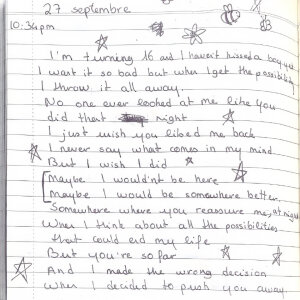 27 septembre
10:34pm
I'm turning 16 and I haven't kissed a boy yet
I want it so bad but when I get the possibility
I throw it all away.
No one ever looked at me like you
did that night
I just wish you liked me back
I never say what comes in my mind
But I wish I did
Maybe I wouldn't be here
Maybe I would be somewhere better
Somewhere where you reassure me, at night
When I think about all the possibilities
that could end my life
But you're so far
And I made the wrong decision
When I decided to push you away